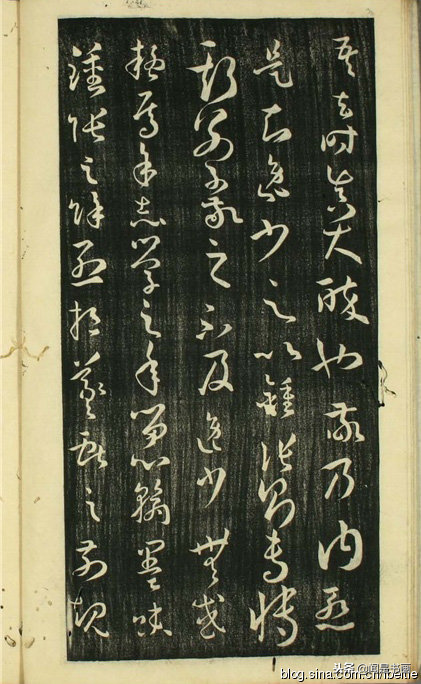 吾去時真大醉也敬乃內慙
是知逸少之比鍾張則專博
斯別子敬之不及逸少無或
疑焉余志學之年留心翰墨味
鍾張之餘烈挹羲獻之前規
头条